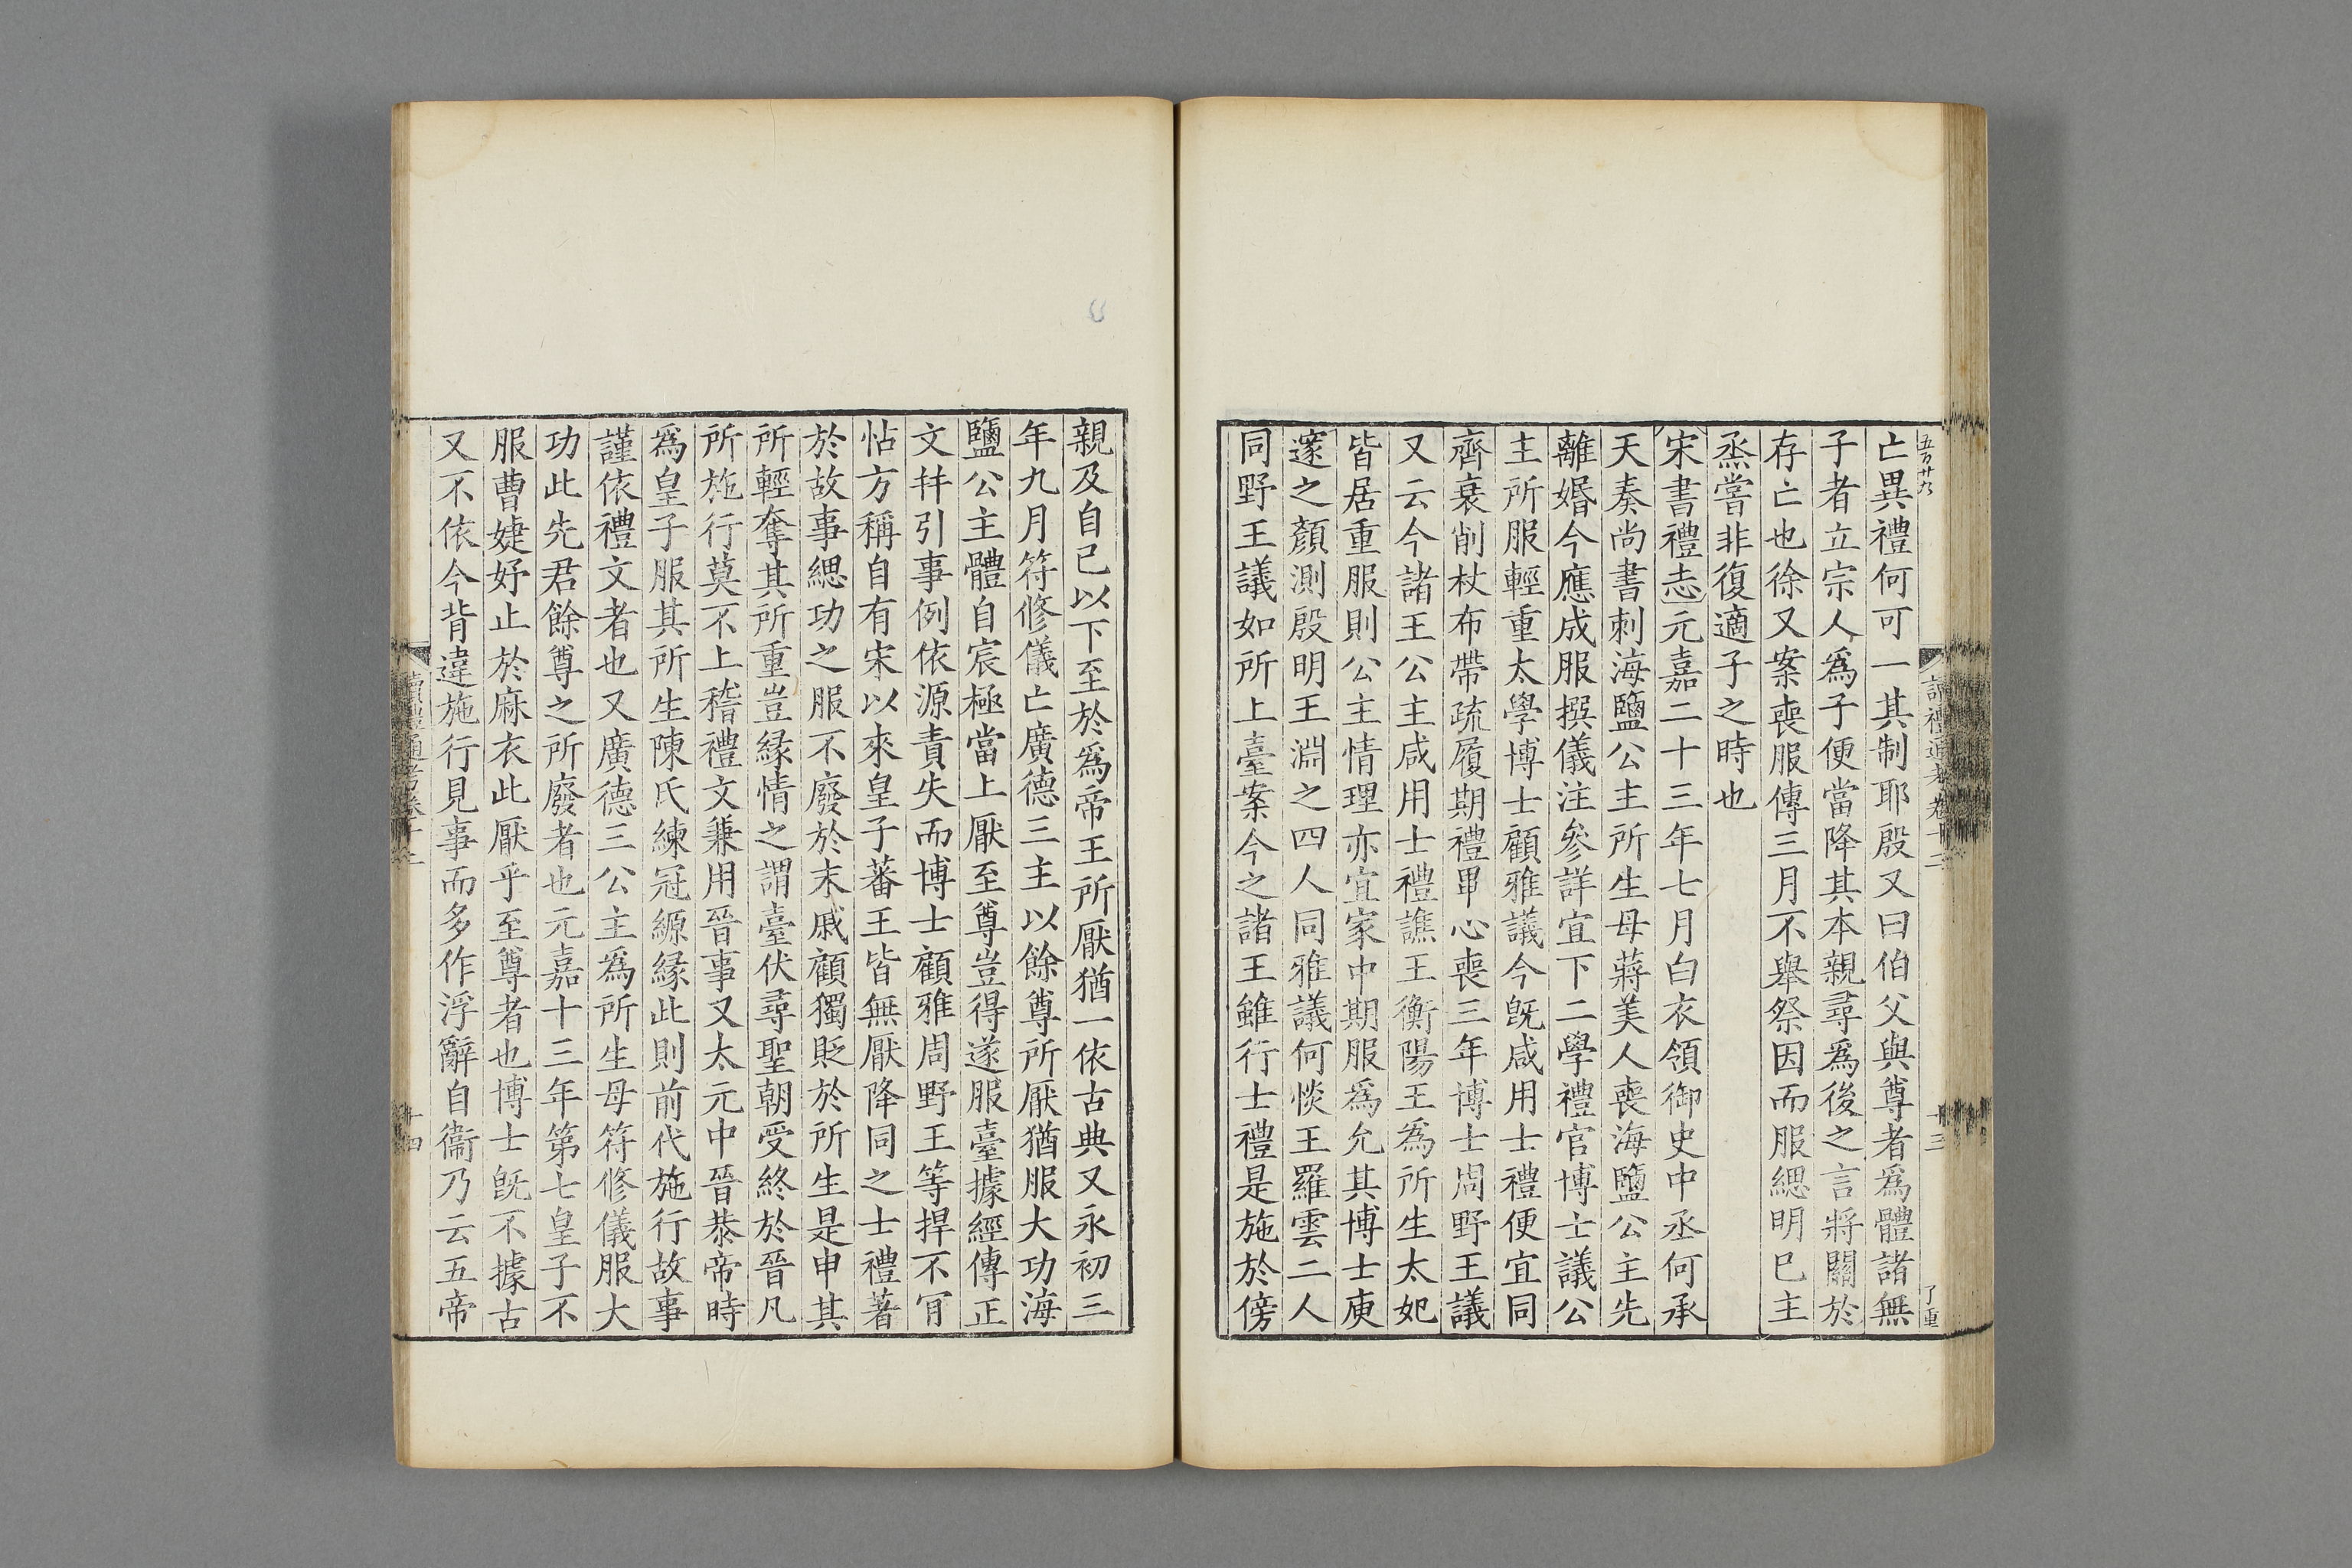 五百廿六
讀禮通考卷十二
十三
了重
亡異禮何可一其制耶殷又曰伯父與尊者爲體諸無
子者立宗人爲子便當降其本親尋爲後之言將關於
存亡也徐又案喪服傳三月不舉祭因而服緦明已主
烝嘗非復適子之時也
宋書禮志元嘉二十三年七月白衣領御史中丞何承
天奏尚書刺海鹽公主所生母蔣美人喪海鹽公主先
離婚今應成服撰儀注參詳宜下二學禮官博士議公
主所服輕重太學博士顧雅議今旣咸用士禮便宜同
齊衰削杖布帶疏履期禮畢心喪三年博士周野王議
又云今諸王公主咸用士禮譙王衡陽王爲所生太妃
皆居重服則公主情理亦宜家中期服爲允其博士庾
邃之顏測殷明王淵之四人同雅議何惔王羅雲二人
同野王議如所上臺案今之諸王雖行士禮是施於傍
親及自已以下至於爲帝王所厭猶一依古典又永初三
年九月符修儀亡廣德三主以餘尊所厭猶服大功海
鹽公主體自宸極當上厭至尊豈得遂服臺據經傳正
文幷引事例依源責失而博士顧雅周野王等捍不肎
怗方稱自有宋以來皇子蕃王皆無厭降同之士禮著
於故事緦功之服不廢於末戚顧獨貶於所生是申其
所輕奪其所重豈緣情之謂臺伏尋聖朝受終於晉凡
所施行莫不上稽禮文兼用晉事又太元中晉恭帝時
爲皇子服其所生陳氏練冠縓緣此則前代施行故事
謹依禮文者也又廣德三公主爲所生母符修儀服大
功此先君餘尊之所廢者也元嘉十三年第七皇子不
服曹婕妤止於麻衣此厭乎至尊者也博士旣不據古
又不依今背違施行見事而多作浮辭自衞乃云五帝
讀禮通考卷十二
十四